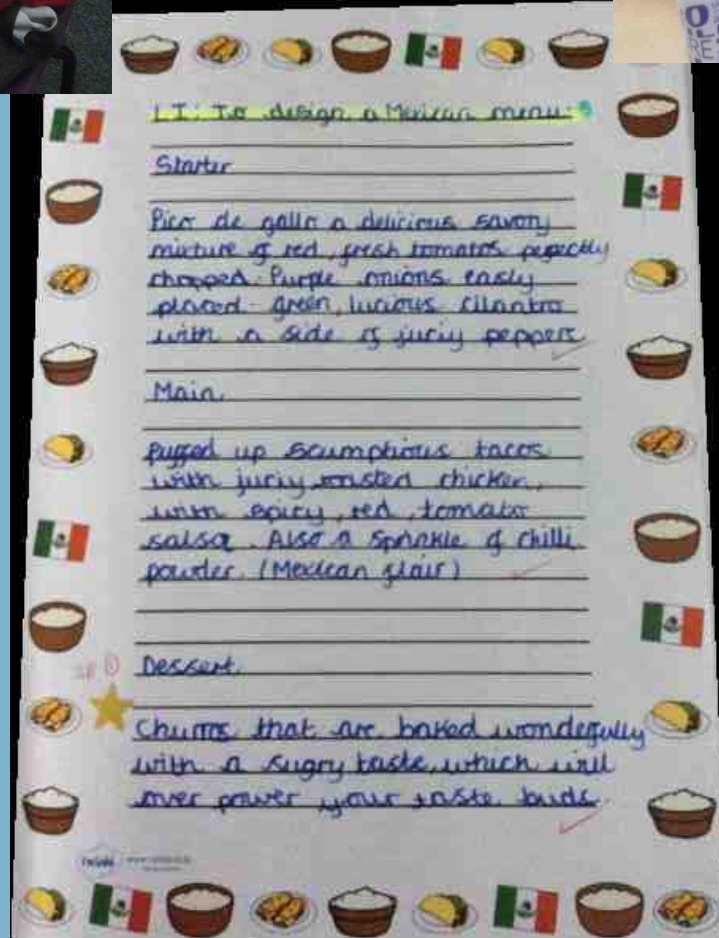 LI: To design a Mexican menu.
Starter
Pico de gallo a delicious savory
mixture of red, fresh tomatos pefectly
chopped. Purple onions easly
placed. green, lucious cilantro
with a side of juciy peppers.
Main
Puffed up scumptious tacos
with juciy roasted chicken,
with spicy, red, tomato
salsa. Also a sprinkle of chilli
powder. (Mexican flair)
Dessert.
Churros that are baked wondefully
with a sugry taste, which will
over power your taste buds.
twinkl